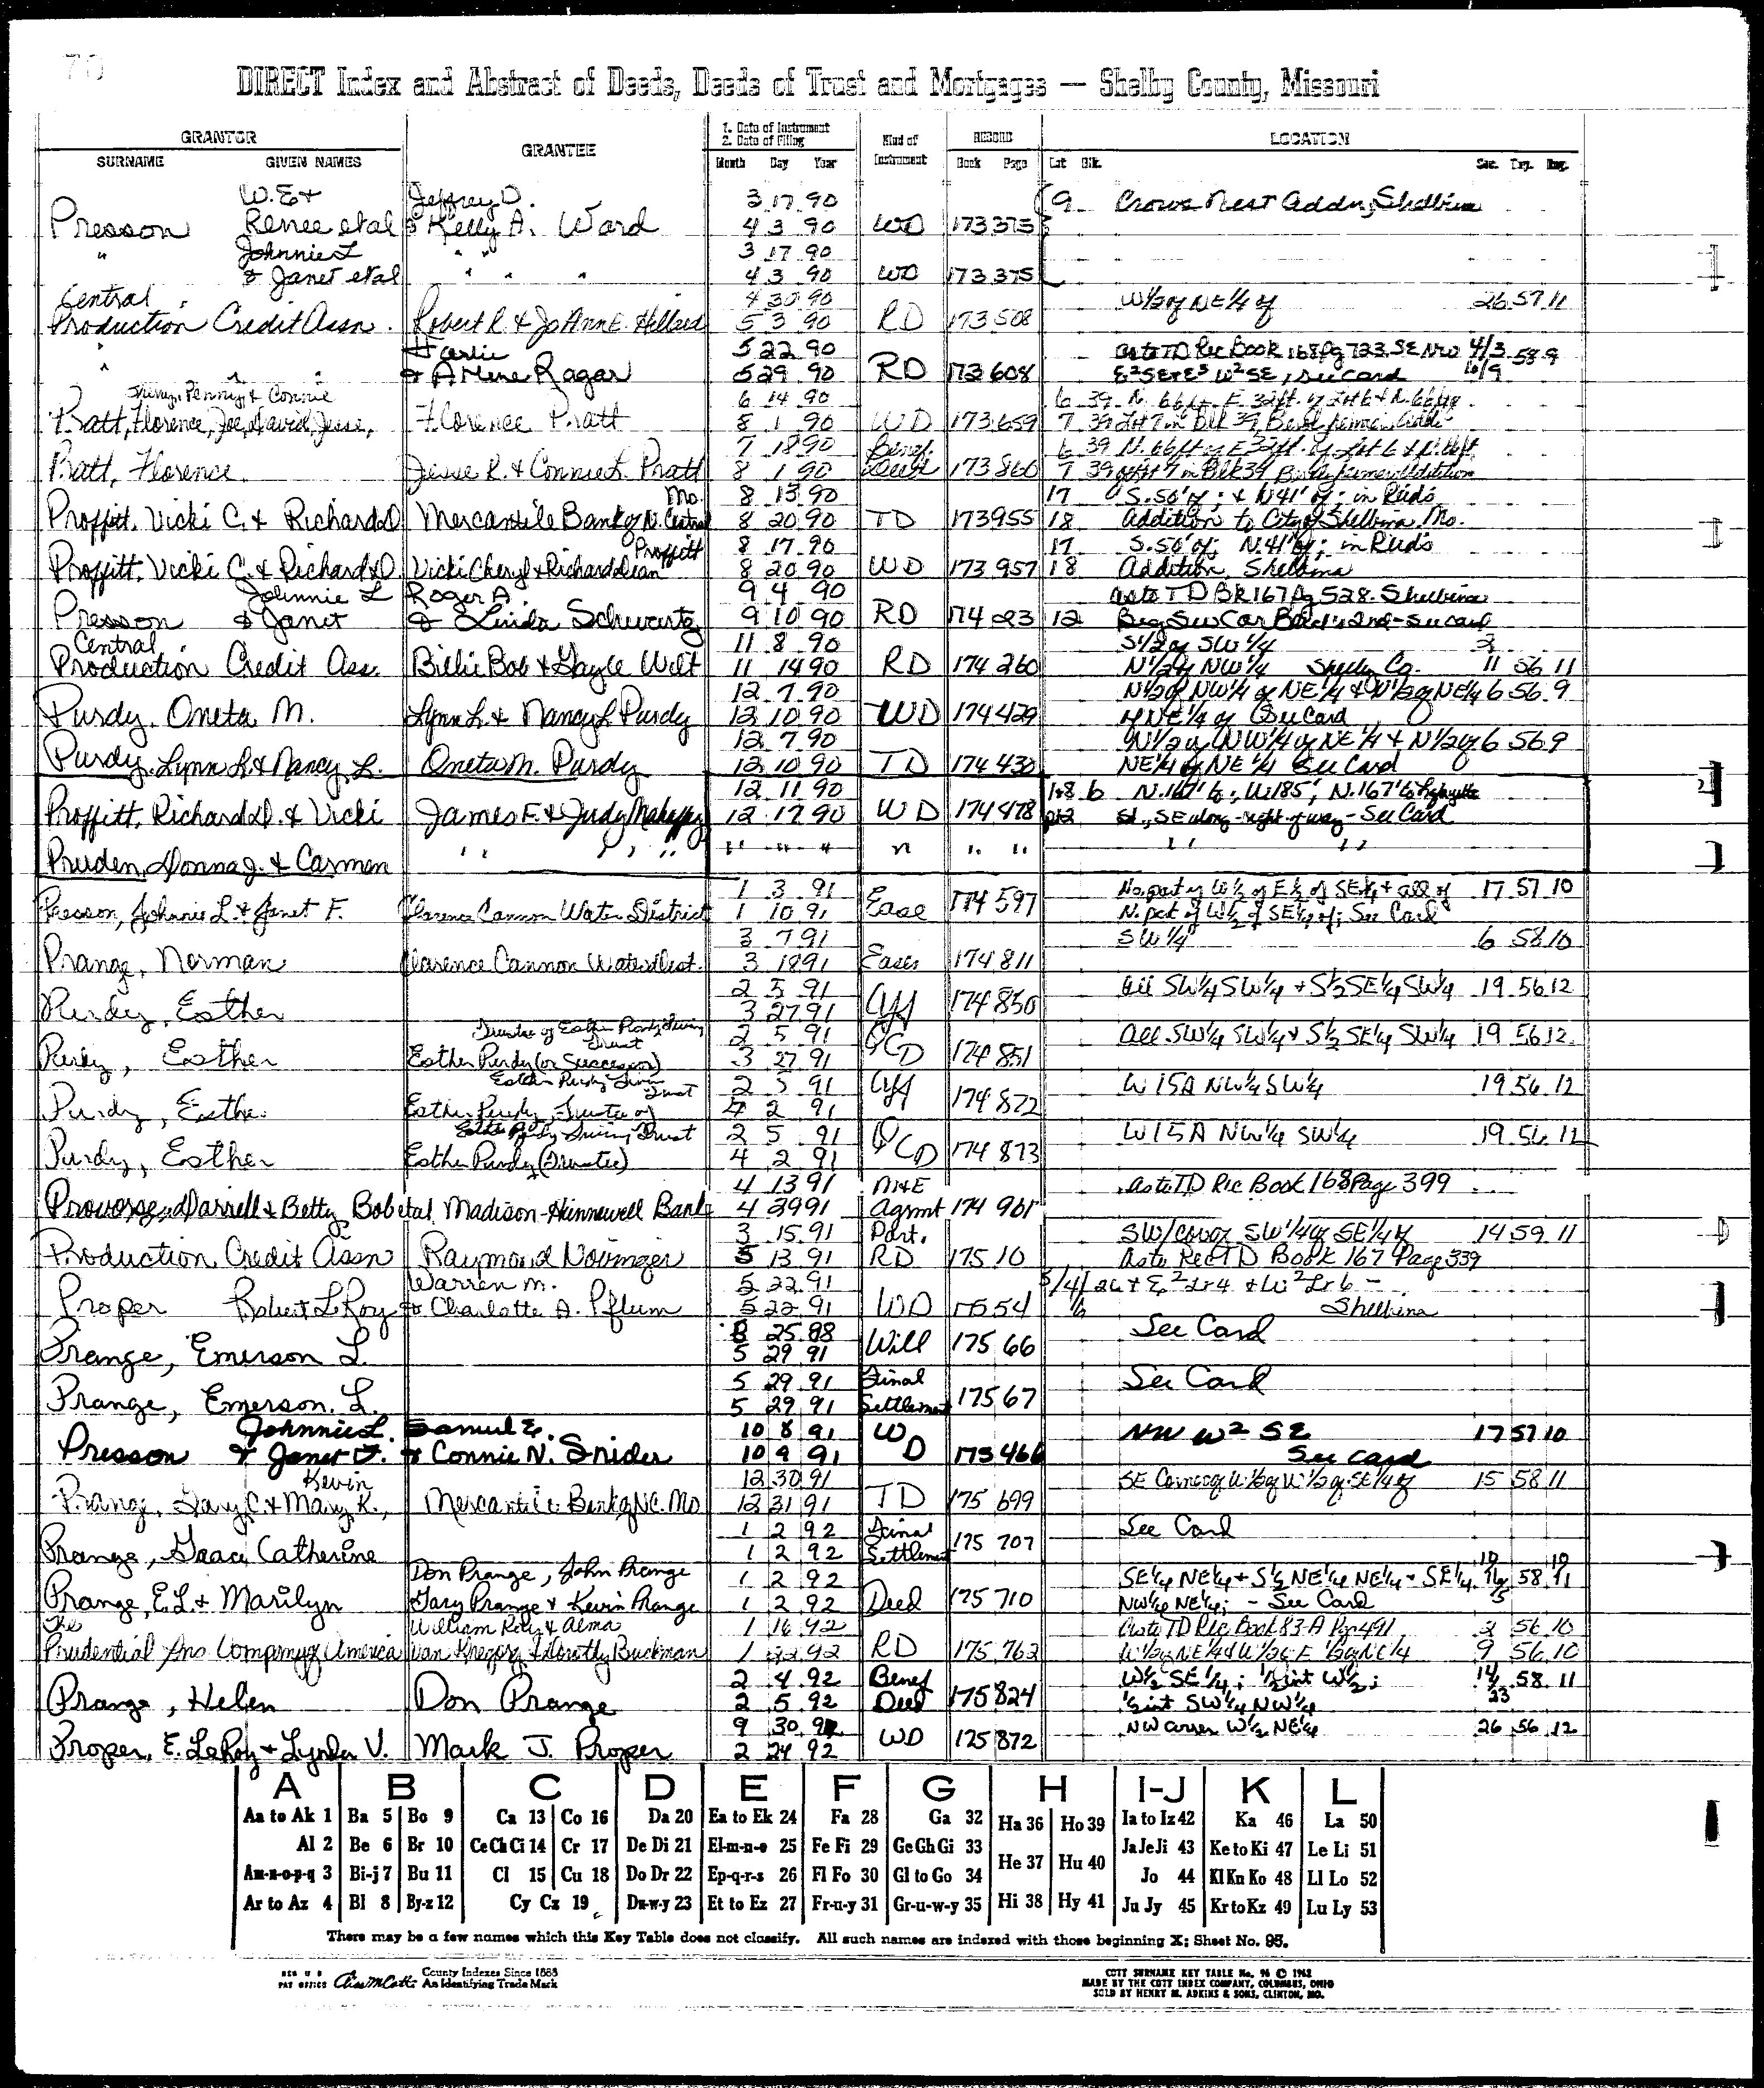 70
DIRECT Index and Abstract of Deeds, Deeds of Trust and Mortgages — Shelby County, Missouri
GRANTOR GRANTEE 1. Date of Instrument 2. Date of Filing Kind of Instrument RECORD LOCATION
SURNAME GIVEN NAMES Month Day Year Book Page Lot Blk. Sec. Twp. Rng.
W.E & Jeffrey D. 3 17 90 9 Crows Nest Addn, Shelbina
Presson Renee etal & Kelly A. Ward 4 3 90 WD 173 375
" Johnnie L 3 17 90
& Janet etal " " " 4 3 90 WD 173 375
Central 4 30 90 W1/2 of NE1/4 of 26 57 11
Production Credit Assn. Robert R. & JoAnn E. 5 3 90 RD 173 508
" Harlie 5 22 90 as to TD Rec Book 168 Pg 723 SE NW 4/3 58 9
" " & Arlene Ragar 5 29 90 RD 173 608 See Card
Penny & Connie 6 14 90 6 39 N. 66ft E 32ft. of Lot 6 & N. 66ft
Pratt, Florence, Joe, David, Jesse, Florence Pratt 8 1 90 WD 173 659 7 39 Lot 7 in Blk 39
7 18 90 Benef. 6 39 N. 66ft of E 32ft. of Lot 6 & N. 66ft
Pratt, Florence Jesse R. & Connie L. Pratt 8 1 90 Deed 173 860 7 39 of Lot 7 in Blk 39 Addition
Mo. 8 13 90 17 S. 50' of; & N 41' of; in Reed's
Proffitt, Vicki C. & Richard D Mercantile Bank of N. Central 8 20 90 TD 173 955 18 Addition to City of Shelbina Mo.
Proffitt 8 17 90 17 S. 50' of; N. 41' of; in Reed's
Proffitt, Vicki C. & Richard D. Vicki Cheryl & Richard Dean 8 20 90 WD 173 957 18 Addition, Shelbina
Johnnie L Roger A. 9 4 90 as to TD BK 167 Pg 528. Shelbina
Presson & Janet & Linda Schwartz 9 10 90 RD 174 23 12 Beg SW Cor
Central 11 8 90 S1/2 of SW 1/4 2
Production Credit Ass. Billie Bob & Gayle Wilt 11 14 90 RD 174 260 N1/2 of NW1/4 Shelby Co. 11 56 11
12 7 90 N1/2 of NW1/4 of NE1/4 & N1/2 of NE1/4 6 56 9
Purdy, Oneta M. Lynn L. & Nancy L Purdy 12 10 90 WD 174 429 of NE 1/4 of See Card
12 7 90 N1/2 of NW1/4 of NE1/4 & N1/2 of 6 56 9
Purdy, Lynn L. & Nancy L. Oneta M. Purdy 12 10 90 TD 174 430 NE1/4 of NE 1/4 See Card
12 11 90 1&8 6 N. 167' 6; W185'; N. 167' 6
Proffitt, Richard D. & Vicki James F. & Judy Mahaffey 12 17 90 WD 174 478 St., SE along right of way - See Card
Pruden, Donna J. & Carmen " " " " " " " " " " "
1 3 91 No. part of W1/2 of E1/2 of SE1/4 & all of 17 57 10
Presson, Johnnie L. & Janet F. Clarence Cannon Water District 1 10 91 Ease 174 597 N. part of W1/2 of SE1/4 of; See Card
3 7 91 SW 1/4 6 58 10
Prange, Norman Clarence Cannon Water Dist. 3 18 91 Eases 174 811
2 5 91 All SW1/4 SW1/4 + S1/2 SE1/4 SW1/4 19 56 12
Purdy, Esther 3 27 91 Aff 174 850
Trustee of Esther Purdy Living Trust 2 5 91 All SW1/4 SW1/4 & S1/2 SE1/4 SW1/4 19 56 12
Purdy, Esther Esther Purdy (or Successor) 3 27 91 QCD 174 851
Esther Purdy Living Trust 2 5 91 Aff W 15A NW1/4 SW1/4 19 56 12
Purdy, Esther Esther Purdy, Trustee of 4 2 91 174 872
Esther Purdy Living Trust 2 5 91 W15A NW1/4 SW1/4 19 56 12
Purdy, Esther Esther Purdy (Trustee) 4 2 91 QCD 174 873
4 13 91 M&E as to TD Rec Book 168 Page 399
Provorse, Darrell & Betty, Bob etal Madison-Hunnewell Bank 4 29 91 Agrmt 174 961
3 15 91 Part. SW/cor of SW1/4 of SE1/4 of 14 59 11
Production Credit Assn Raymond Novinger 5 13 91 RD 175 10 As to Rec TD Book 167 Page 339
Warren M. 5 22 91 3/4/ 26 & E2 Lr 4 & W2 Lr 6 -
Proper Robert LeRoy & Charlotte A. Pflum 5 22 91 WD 175 54 Shelbina
8 25 88 See Card
Prange, Emerson L. 5 29 91 Will 175 66
5 29 91 Final See Card
Prange, Emerson. L. 5 29 91 Settlement 175 67
Johnnie L. Samuel E. 10 8 91 NW W2 SE 17 57 10
Presson & Janet F. & Connie N. Snider 10 9 91 WD 175 466 See Card
Kevin 12 30 91 SE Corner of W1/2 of W1/2 of SE1/4 of 15 58 11
Prange, Gary C. & Mary K., Mercantile Bank of NC. Mo 12 31 91 TD 175 699
1 2 92 Final See Card
Prange, Grace Catherine 1 2 92 Settlement 175 707
Don Prange, John Prange 1 2 92 SE1/4 NE1/4 + S1/2 NE1/4 NE1/4 - SE1/4 58 11
Prange, E.L. & Marilyn Gary Prange & Kevin Prange 1 2 92 Deed 175 710 NW1/4 NE1/4; - See Card
The William Roy & Alma 1 16 92 As to TD Rec Book 83-A Pg 491 2 56 10
Prudential Ins Company of America Van Gregory & Dorothy Buckman 1 22 92 RD 175 762 W1/2 NE1/4 & W1/2 of E 1/2 of NE1/4 9 56 10
2 4 92 Benef W1/2 SE1/4; 1/2 int W1/2; 14 58 11
Prange, Helen Don Prange 2 5 92 Deed 175 824 1/2 int SW1/4 NW1/4 23
9 30 92 NW corner W1/2 NE1/4 26 56 12
Proper, E. LeRoy & Lynden V. Mark J. Proper 2 24 92 WD 175 872
A B C D E F G H I-J K L
Aa to Ak 1 Ba 5 Bo 9 Ca 13 Co 16 Da 20 Ea to Ek 24 Fa 28 Ga 32 Ha 36 Ho 39 Ia to Iz 42 Ka 46 La 50
Al 2 Be 6 Br 10 Ce Ch Ci 14 Cr 17 De Di 21 El-m-n-o 25 Fe Fi 29 Ge Gh Gi 33 He 37 Hu 40 Ja Je Ji 43 Ke to Ki 47 Le Li 51
Am-n-o-p-q 3 Bi-j 7 Bu 11 Cl 15 Cu 18 Do Dr 22 Ep-q-r-s 26 Fl Fo 30 Gl to Go 34 Jo 44 Kl Kn Ko 48 Ll Lo 52
Ar to Az 4 Bl 8 By-z 12 Cy Cz 19 Du-w-y 23 Et to Ez 27 Fr-u-y 31 Gr-u-w-y 35 Hi 38 Hy 41 Ju Jy 45 Kr to Kz 49 Lu Ly 53
There may be a few names which this Key Table does not classify. All such names are indexed with those beginning X; Sheet No. 95.
REG U S PAT OFFICE County Indexes Since 1888 An Identifying Trade Mark
COTT SURNAME KEY TABLE No. 96 © 1962
MADE BY THE COTT INDEX COMPANY, COLUMBUS, OHIO
SOLD BY HENRY M. ADKINS & SONS, CLINTON, MO.